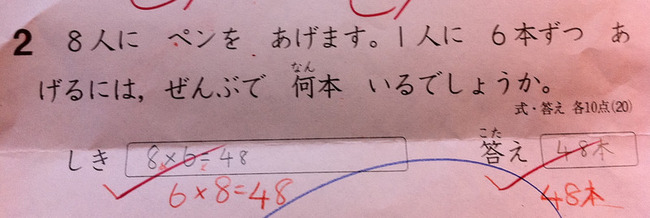 2 8人に ペンを あげます。1人に 6本ずつ あ
げるには，ぜんぶで 何本 いるでしょうか。
なん
式・答え 各10点(20)
しき 8×6=48 答え 48本
こた
6×8=48 48本